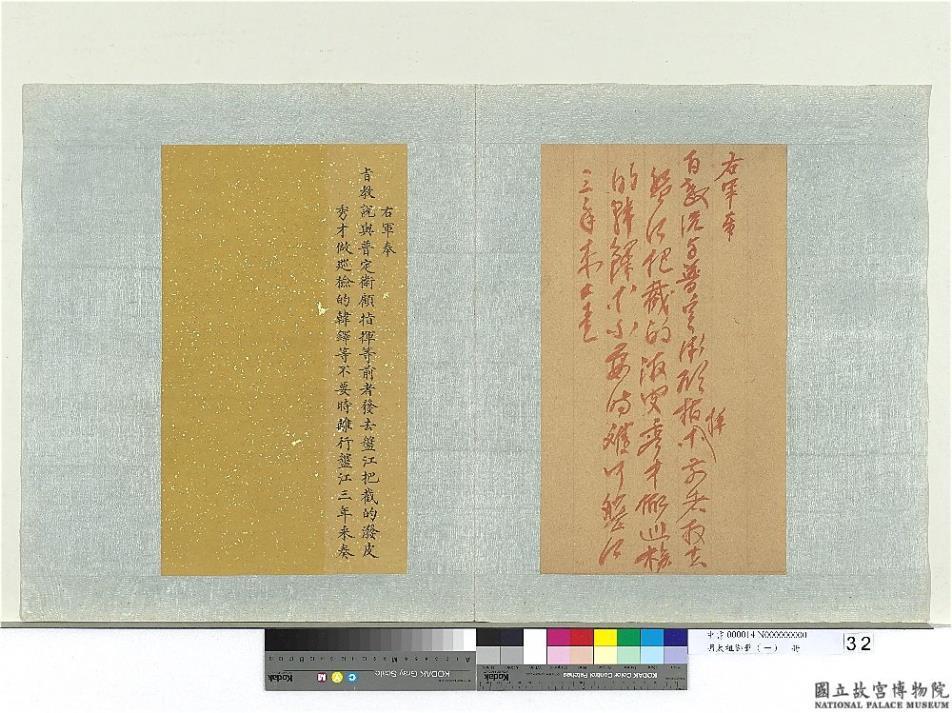 右軍奉
旨教說与普定衛顧指揮等前者發去
盤江把截的潑皮秀才做巡檢
的韓鐸等不要時離行盤江
三年来奏
右軍奉
旨教說與普定衛顧指揮等前者發去盤江把截的潑皮
秀才做巡檢的韓鐸等不要時離行盤江三年来奏
KODAK Gray Scale
Kodak
C Y M
Kodak
KODAK Color Control Patches
000014 N000000000
明太祖御筆(一) 冊
32
國立故宮博物院
NATIONAL PALACE MUSEUM